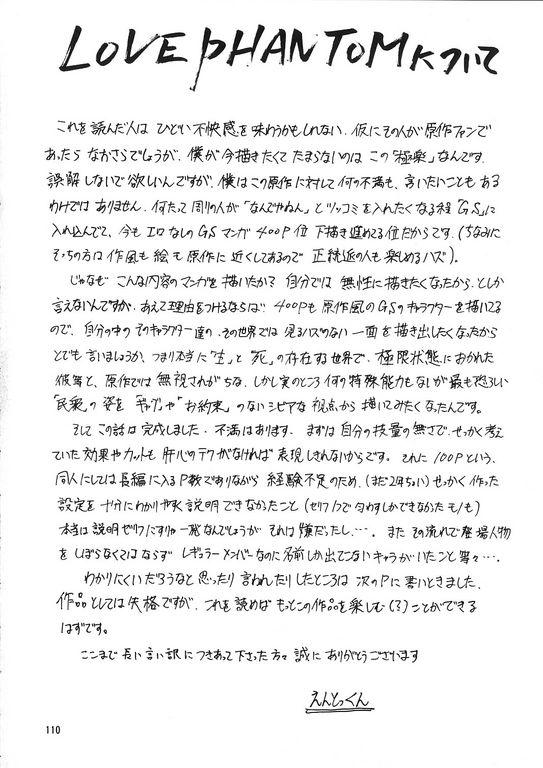 LOVE PHANTOMについて
これを読んだ人は ひどい不快感を味わうかもしれない. 仮にその人が原作ファンで
あったら なおさらでしょうが. 僕が今描きたくて たまらないのは この「極楽」なんです.
誤解しないで欲しいんですが. 僕はこの原作に対して何の不満も、言いたいことも ある
わけでは ありません. 何たって周りの人が「なんでやねん」とツッコミを入れたくなる程「GS」に
入れ込んでて、今も エロなしのGSマンガ 400P位 下描き進めてる位だからです。(ちなみに
そっちの方は作風も絵も原作に近くしてあるので 正統派の人も楽しめるハズ).
じゃなぜ こんな内容のマンガを描いたか? 自分では 無性に描きたくなったから、としか
言えないんですが. あえて理由をつけるならば、400Pも原作風のGSのキャラクターを描いてる
ので、自分の中の そのキャラクター達の、その世界では 見るハズのない 一面を描き出したくなったから
とでも言いましょうか、つまり本当に「生」と「死」の存在する世界で、極限状態に おかれた
彼等と、原作では無視されがちな、しかし実のところ何の特殊能力もないが最も恐ろしい
「民衆」の姿を「ギャグ」や「お約束」のないシビアな視点から描いてみたくなったんです。
そしてこの話は完成しました. 不満はあります. まずは自分の技量の無さで、せっかく考え
ていた効果やカットも肝心のテクがなければ表現しきれないからです. それに100Pという、
同人にしては長編に入るP数でありながら 経験不足のため、(まだ2年ちょい) せっかく作った
設定を十分にわかりやすく説明できなかったこと(セリフで匂わすしかできなかったモノも)
本当は説明ゼリフにすりゃ一発なんでしょうが それは嫌だったし…. また その流れで登場人物
を しぼらなくてはならず レギュラーメンバーなのに名前しか出てこないキャラがいたこと等々….
わかりにくいだろうなと思ったり言われたりしたところは 次のPに書いときました.
作品としては失格ですが、これを読めばもっとこの作品を楽しむ(?)ことができる
はずです。
ここまで長い言い訳につきあって下さった方々 誠に ありがとうございます
えんとっくん
110